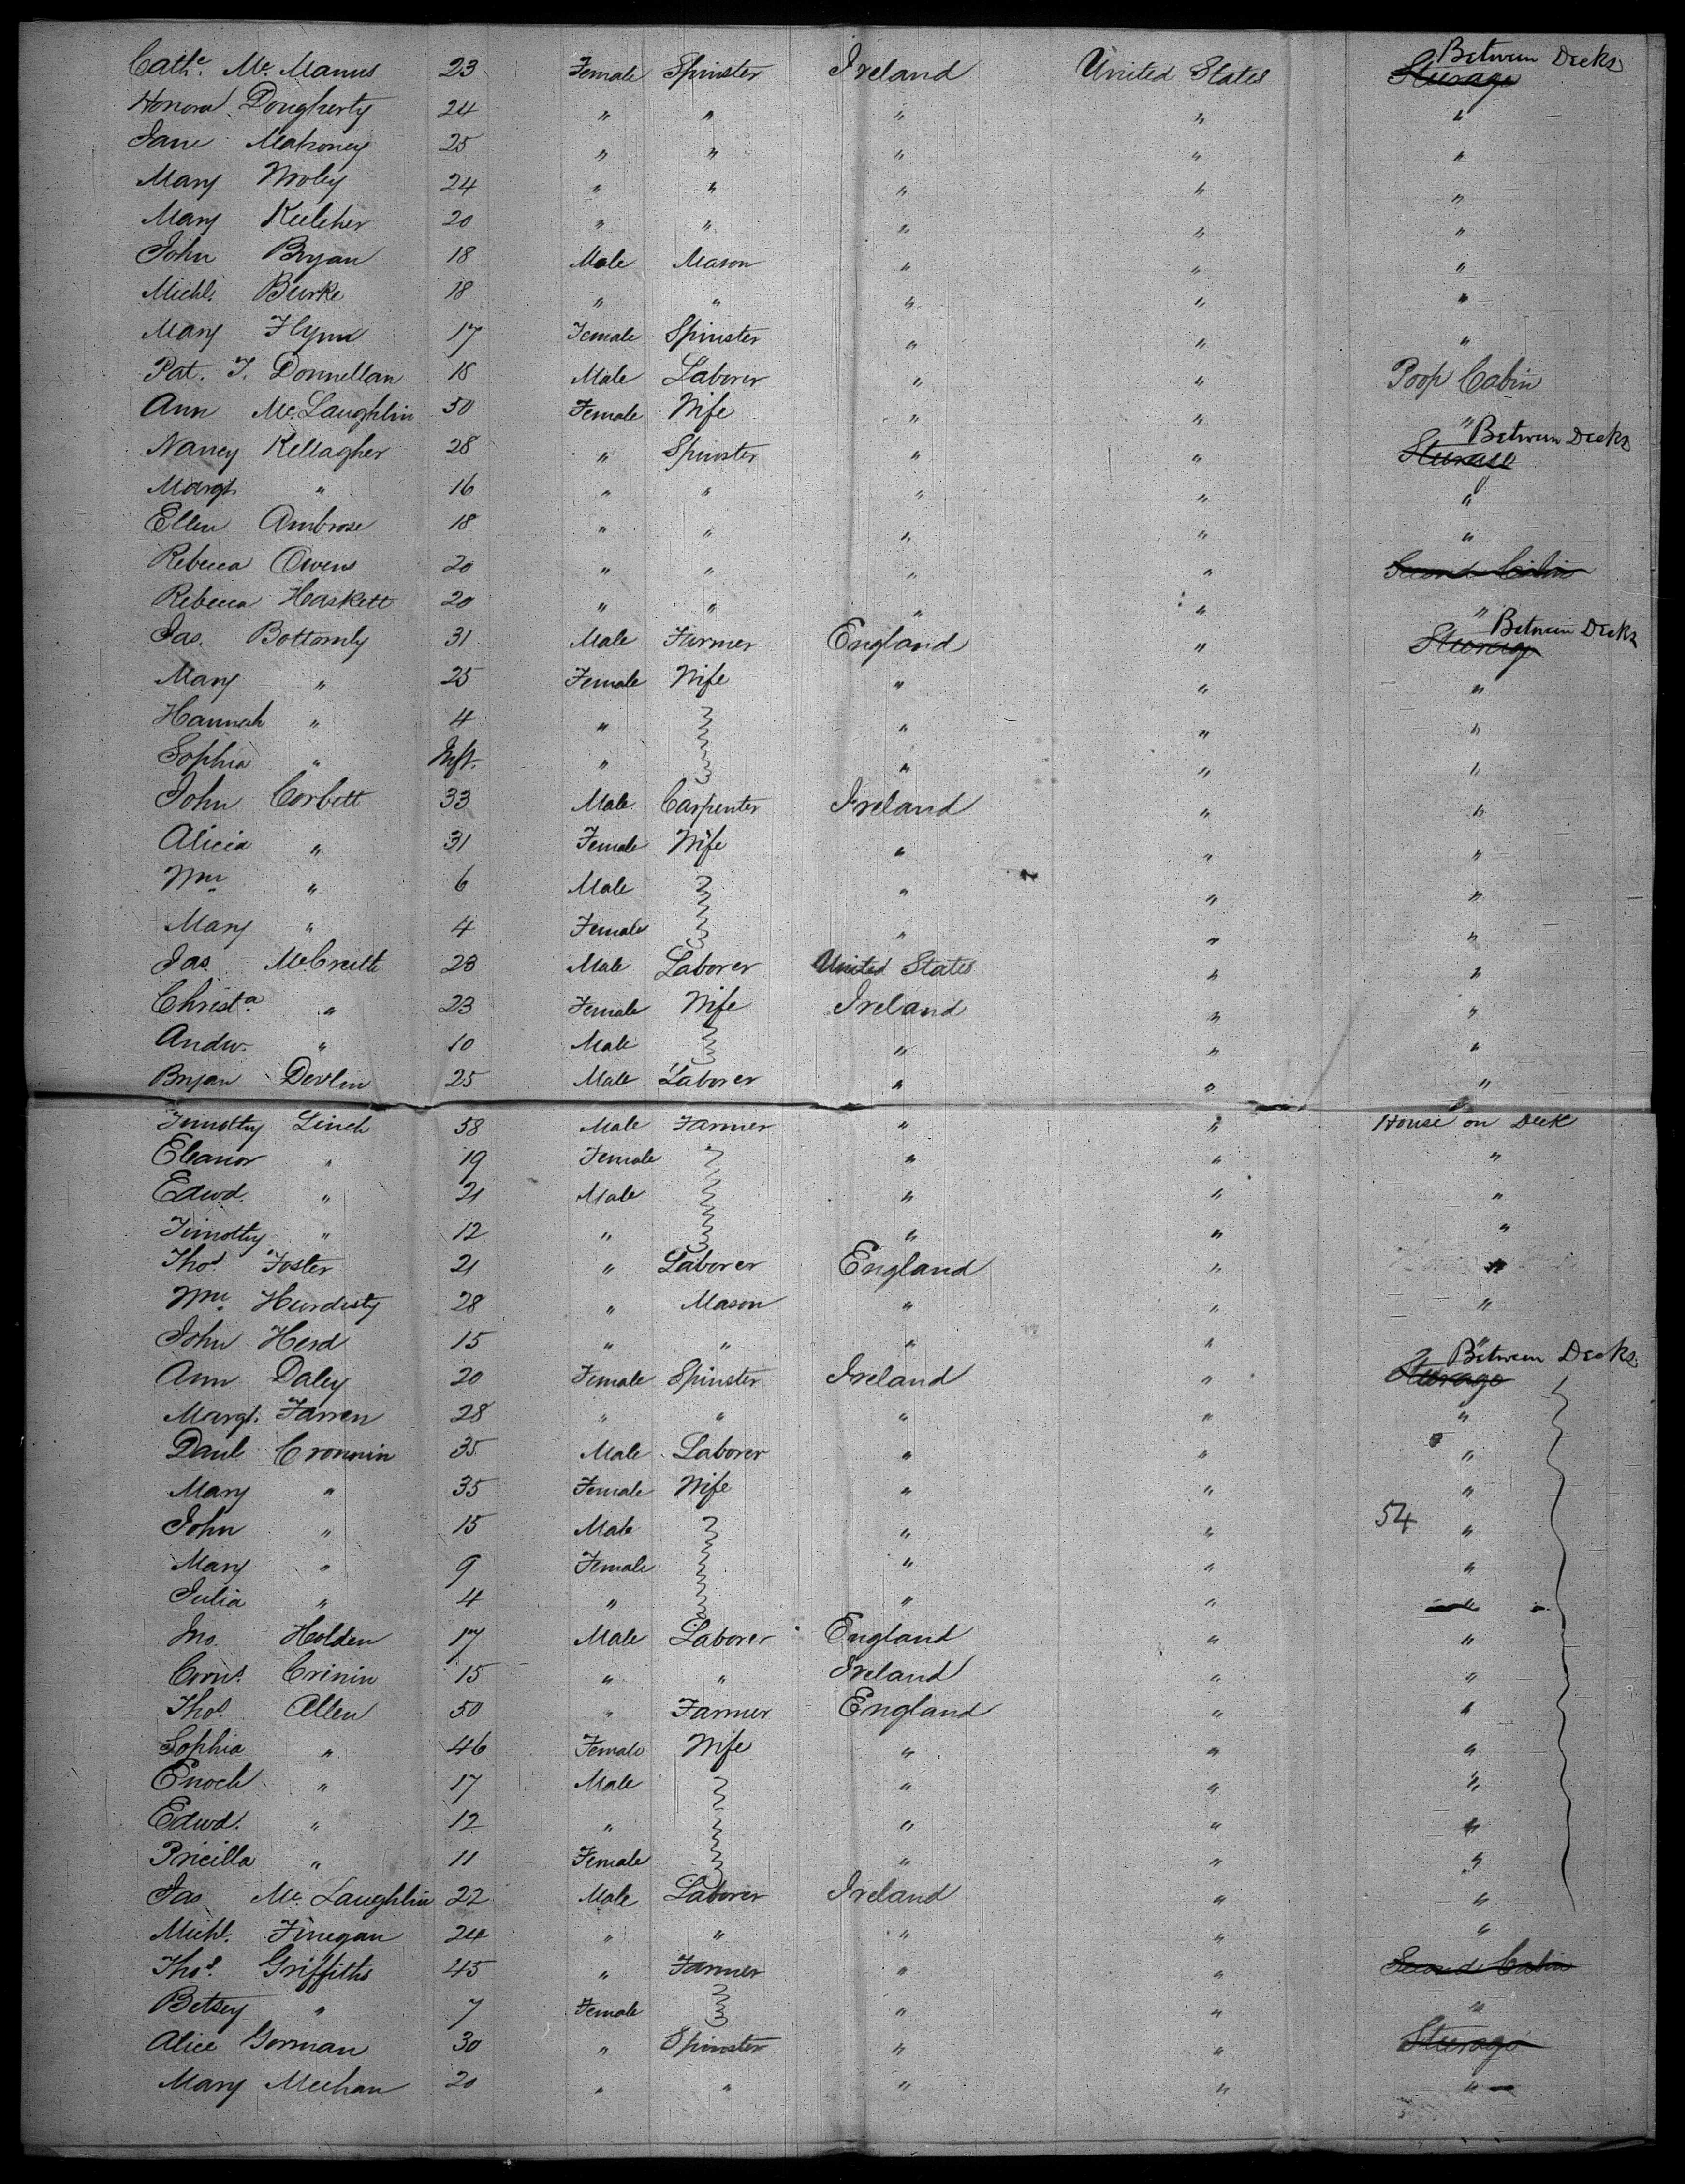 Cathe. Mc. Manus 23 Female Spinster Ireland United States Between Decks Steerage
Honora Dougherty 24 " " " " "
Jane Mahoney 25 " " " " "
Mary 24 " " " " "
Mary Keleher 20 " " " " "
John Bryan 18 Male Mason " " "
Michl. Burke 18 " " " " "
Mary Flynn 17 Female Spinster " " "
Pat. T. Donnellan 18 Male Laborer " " Poop Cabin
Ann Mc. Laughlin 50 Female Wife " " "
Nancy Kellagher 28 " Spinster " " Between Decks Steerage
Margt. " 16 " " " " "
Ellen Ambrose 18 " " " " "
Rebecca Owens 20 " " " " Second Cabin
Rebecca Haskett 20 " " " " "
Jas. Bottomly 31 Male Farmer England " Between Decks Steerage
Mary " 25 Female Wife " " "
Hannah " 4 " " " "
Sophia " Inft. " " " "
John Corbett 33 Male Carpenter Ireland " "
Alicia " 31 Female Wife " " "
Wm " 6 Male " " "
Mary " 4 Female " " "
Jas. 23 Male Laborer United States " "
Christa. " 23 Female Wife Ireland " "
Andw. " 10 Male " " "
Bryan Devlin 25 Male Laborer " " "
Timothy Linch 58 Male Farmer " " House on Deck
Eleanor " 19 Female " " "
Edwd. " 21 Male " " "
Timothy " 12 " " " "
Thos. Foster 21 " Laborer England " "
Wm Hurdisty 28 " Mason " " "
John Herd 15 " " " " "
Ann Daley 20 Female Spinster Ireland " Between Decks Steerage
Margt. Farren 28 " " " " "
Danl Cronnin 35 Male Laborer " " "
Mary " 35 Female Wife " " "
John " 15 Male " " 54 "
Mary " 9 Female " " "
Julia " 4 " " " "
Jno. Holden 17 Male Laborer England " "
Corns. Crinin 15 " " Ireland " "
Thos. Allen 50 " Farmer England " "
Sophia " 46 Female Wife " " "
Enoch " 17 Male " " "
Edwd. " 12 " " " "
Pricilla " 11 Female " " "
Jas Mc. Laughlin 22 Male Laborer Ireland " "
Michl. Finegan 24 " " " " "
Thos. Griffiths 45 " Farmer " " Second Cabin
Betsey " 7 Female " " "
Alice Gorman 30 " Spinster " " Steerage
Mary Meehan 20 " " " " "